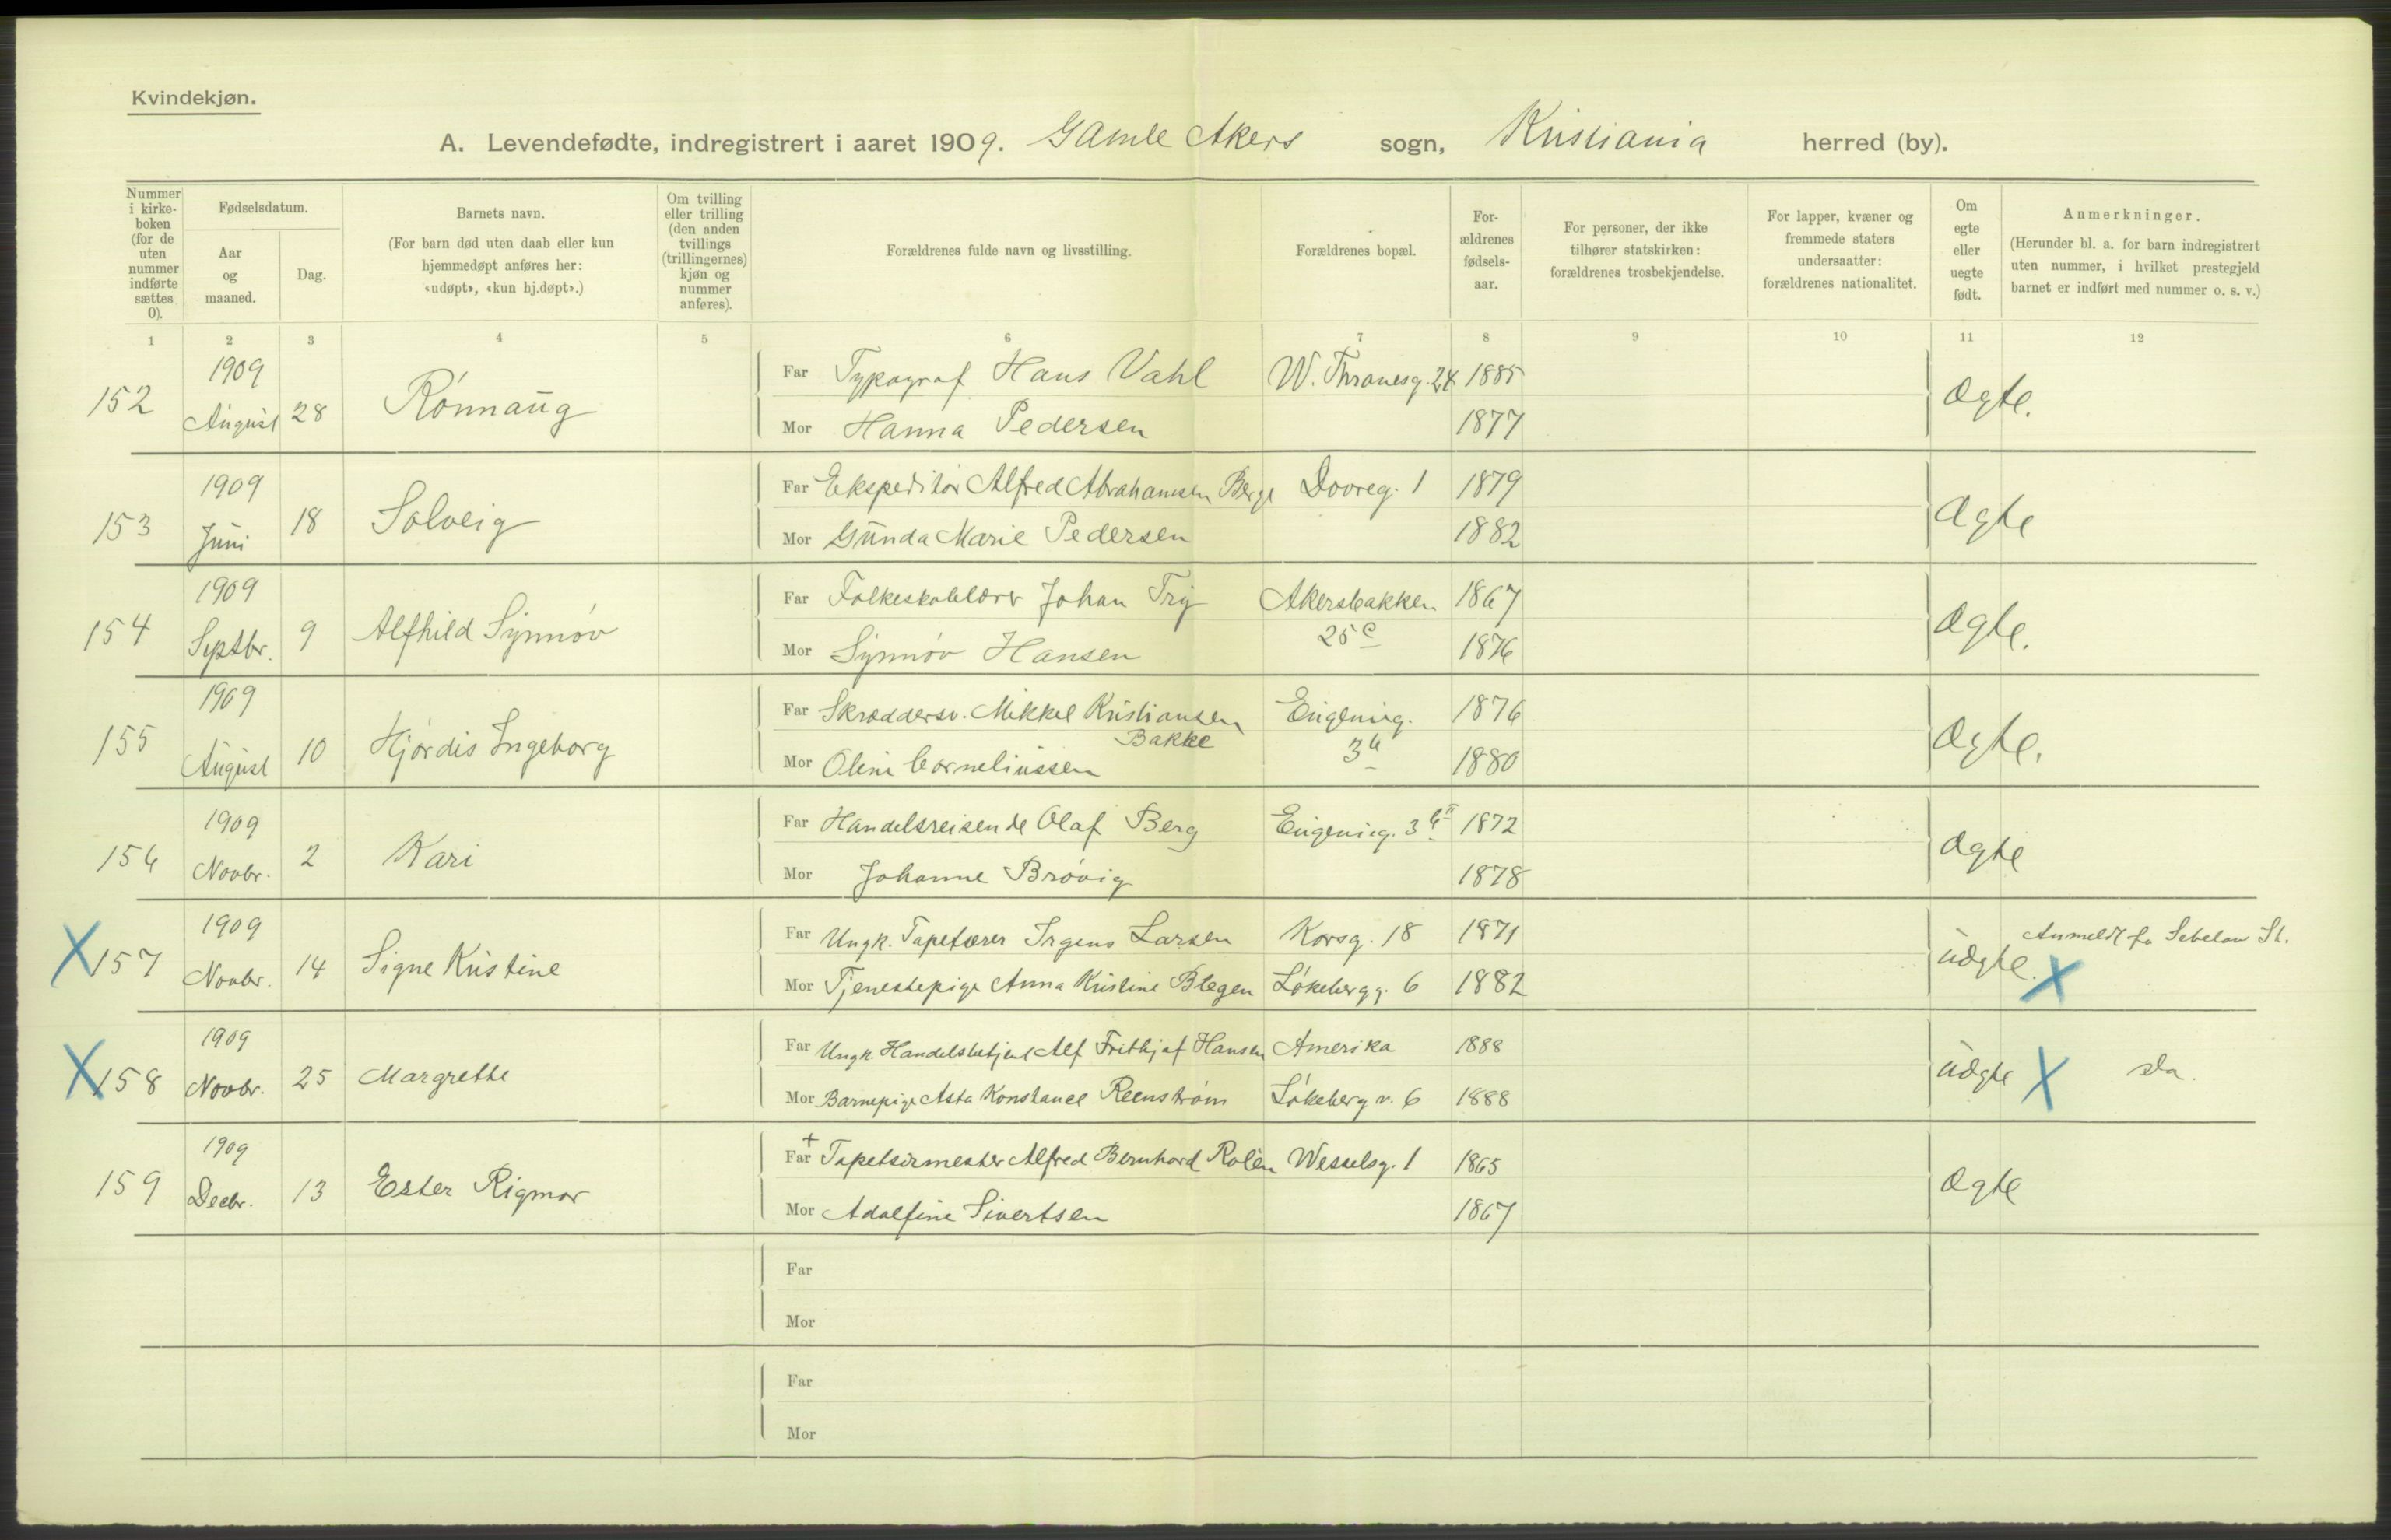 Kvindekjøn.
A. Levendefødte, indregistrert i aaret 1909. Gamle Akers sogn, Kristiania herred (by).
Nummer i kirkeboken (for de uten nummer indførte sættes 0).
Fødselsdatum.
Aar og maaned.
Dag.
Barnets navn.
(For barn død uten daab eller kun hjemmedøpt anføres her: «udøpt», «kun hj.døpt».)
Om tvilling eller trilling (den anden tvillings (trillingernes) kjøn og nummer anføres).
Forældrenes fulde navn og livsstilling.
Forældrenes bopæl.
Forældrenes fødselsaar.
For personer, der ikke tilhører statskirken: forældrenes trosbekjendelse.
For lapper, kvæner og fremmede staters undersaatter: forældrenes nationalitet.
Om egte eller uegte født.
Anmerkninger.
(Herunder bl. a. for barn indregistrert uten nummer, i hvilket prestegjeld barnet er indført med nummer o. s. v.)
1 2 3 4 5 6 7 8 9 10 11 12
152 1909 August 28 Rónnaug
Far Typograf Hans Vahl W. Thranesg. 24 1885 ægte.
Mor Hanna Pedersen 1877
153 1909 Juni 18 Solveig
Far Ekspeditør Alfred Abrahamsen Berge Dovreg. 1 1879 ægte
Mor Gunda Marie Pedersen 1882
154 1909 Septbr. 9 Alfhild Synnóv
Far Folkeskolelærer Johan Try Akersbakken 25 c 1867 ægte.
Mor Synnóv Hansen 1876
155 1909 August 10 Hjórdis Ingeborg
Far Skræddersv. Mikkel Kristiansen Bakke Eugenieg. 1876 ægte.
Mor Oline Corneliussen 1880
156 1909 Novbr. 2 Kari
Far Handelsreisende Olaf Berg Eugenieg. 1872 ægte
Mor Johanne Bróvig 1878
X 157 1909 Novbr. 14 Signe Kristine
Far Ungk. Tapetserer Irgens Larsen Korsg. 18 1871 uægte. X Anmeldt fra St.
Mor Tjenestepige Anna Kristine Blegen Lókebergg. 6 1882
X 158 1909 Novbr. 25 Margrethe
Far Ungk. Handelsbetjent Alf Frithjof Hansen Amerika 1888 uægte X do.
Mor Barnepige Asta Konstance Reenstróm Lókeberg v. 6 1888
159 1909 Decbr. 13 Ester Rigmor
+
Far Tapetsermester Alfred Bernhard Rolén Wesselsg. 1 1865 ægte
Mor Adolfine Sivertsen 1867
Far
Mor
Far
Mor